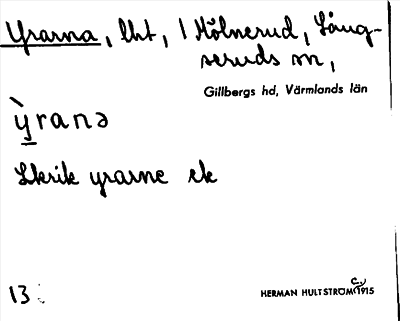 Yrarna, lht, 1 Mölnerud, Lång-
seruds sn,
Gillbergs hd, Värmlands län
ỳranə
yrarne ek
13
HERMAN HULTSTRÖM C. 1915